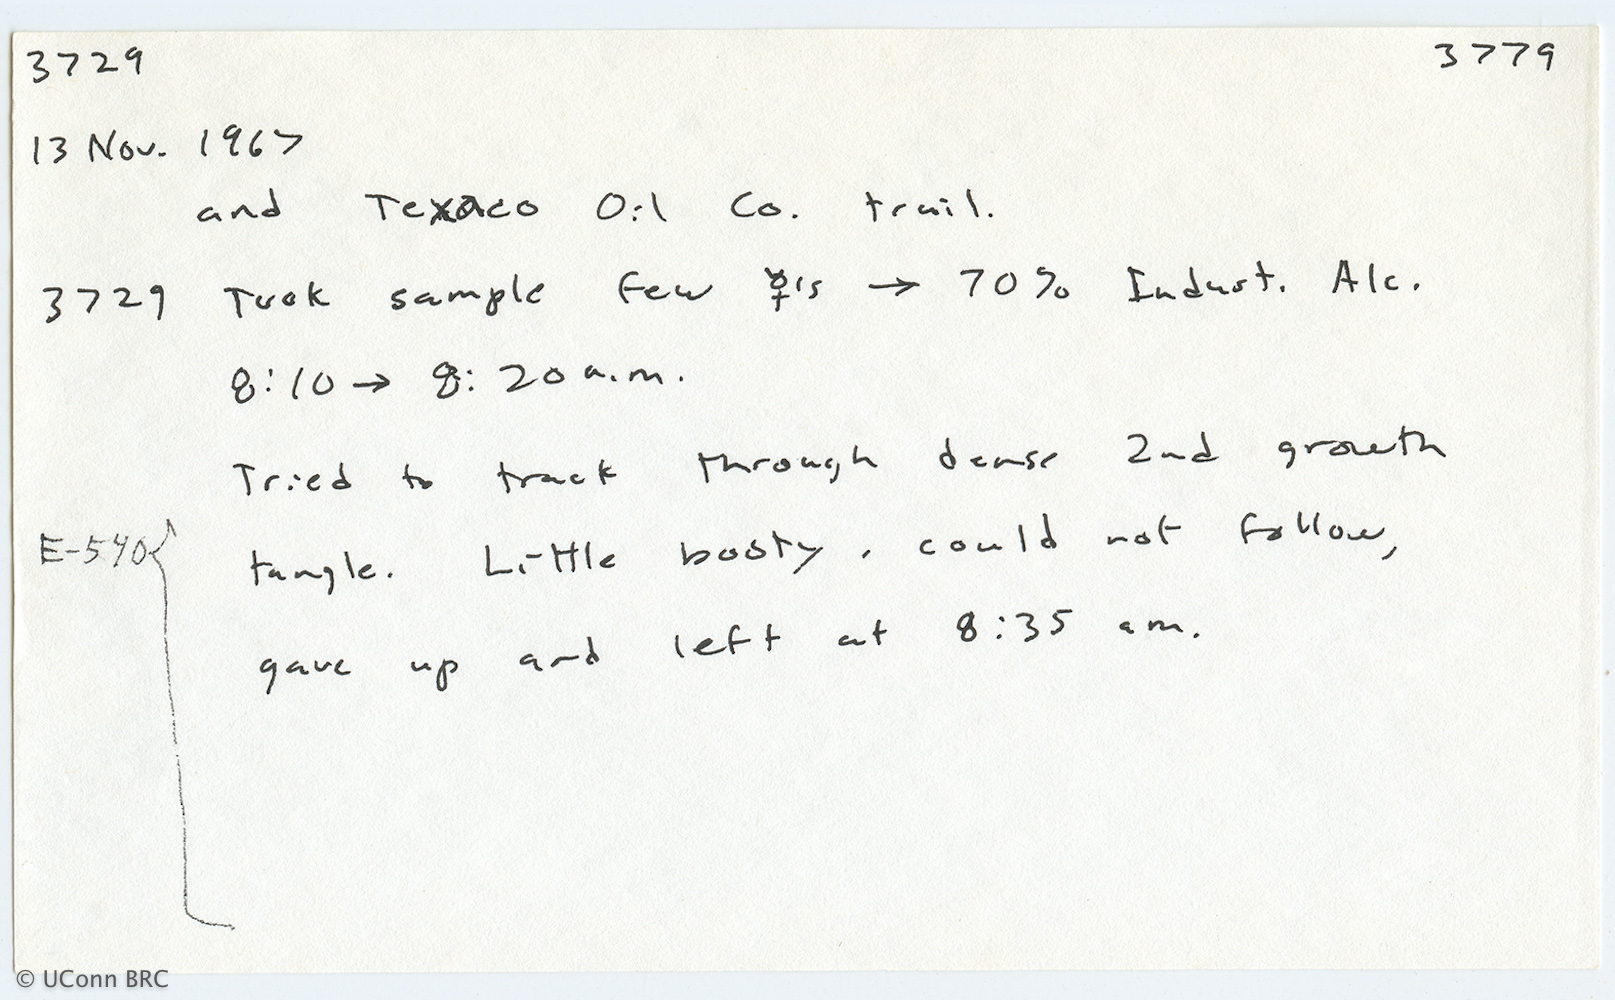 3729 3779
13 Nov. 1967
and Texaco Oil Co. trail.
3729 Took sample few ☿'s → 70% Indust. Alc.
8:10 → 8:20 a.m.
Tried to track through dense 2nd growth
E-540 tangle. Little booty, could not follow,
gave up and left at 8:35 am.
© UConn BRC